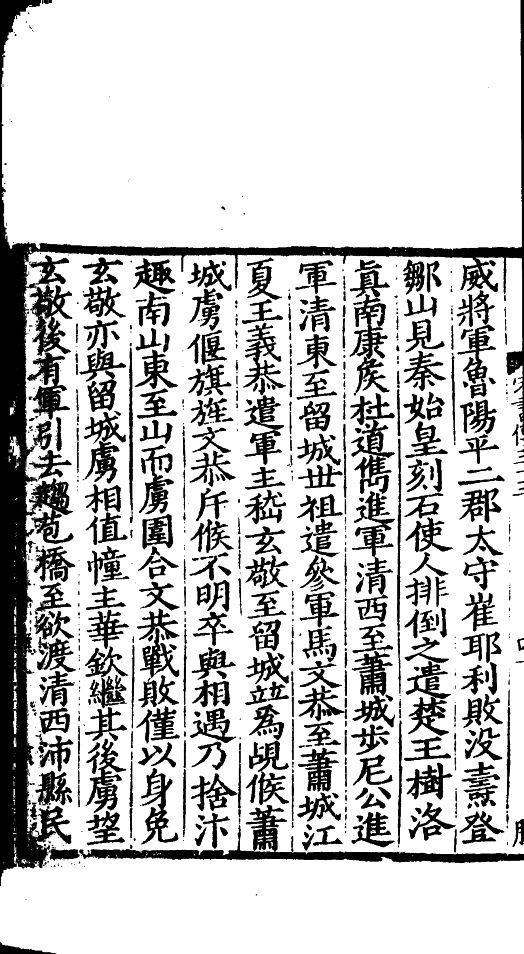 威將軍魯陽平二郡太守崔耶利敗没燾登
鄒山見秦始皇刻石使人排倒之遣楚王樹洛
真南康侯杜道儁進軍清西至蕭城步尼公進
軍清東至留城世祖遣參軍馬文恭至蕭城江
夏王義恭遣軍主嵇玄敬至留城並爲覘候蕭
城虜偃旗旌文恭斥候不明卒與相遇乃捨汴
趣南山東至山而虜圍合文恭戰敗僅以身免
玄敬亦與留城虜相值幢主華欽繼其後虜望
玄敬後有軍引去趨苞橋至欲渡清西沛縣民